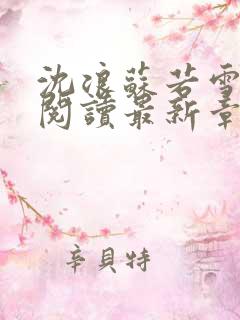 沈浪蘇若雪
閱讀最新章
辛貝特